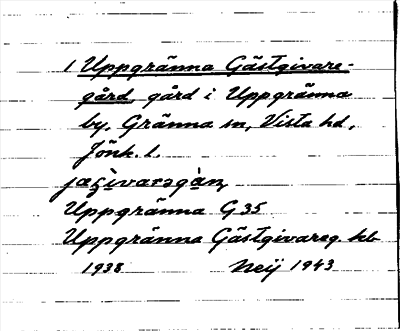 1 Uppgränna Gästgivare-
gård, gård i Uppgränna
by, Gränna sn, Vista hd,
Jönk. l.
Uppgränna G 35
Uppgränna Gästgivareg. kb
1938 Neij 1943